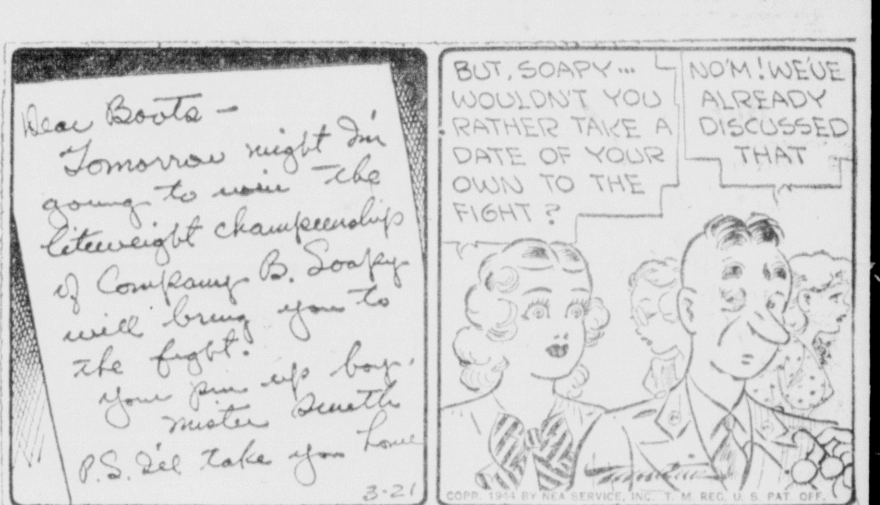 Dear Boots -
Tomorrow night I'm
going to win the
liteweight champeenship
of Company B. Soapy
will bring you to
the fight.
Your pin up boy,
Mister Smith
P.S. I'll take you home
3-21
BUT, SOAPY...
WOULDN'T YOU
RATHER TAKE A
DATE OF YOUR
OWN TO THE
FIGHT?
NO'M! WE'VE
ALREADY
DISCUSSED
THAT
COPR. 1944 BY NEA SERVICE, INC. T. M. REG. U. S. PAT. OFF.